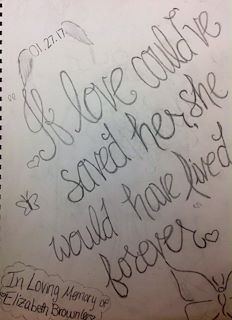 01.27.17
If love could've
saved her, she
would have lived
forever
In Loving Memory of
Elizabeth Brown